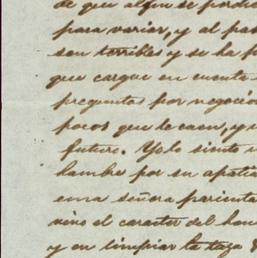 de que algun se
para variar, y al
son terribles y se ha
que cargue en cuenta
preguntas por negocio
pocos que le caen, y
futuro. Yo lo siento
hambre por su apatia
una señora parienta
vino el caracter del
y en limpiar la taza